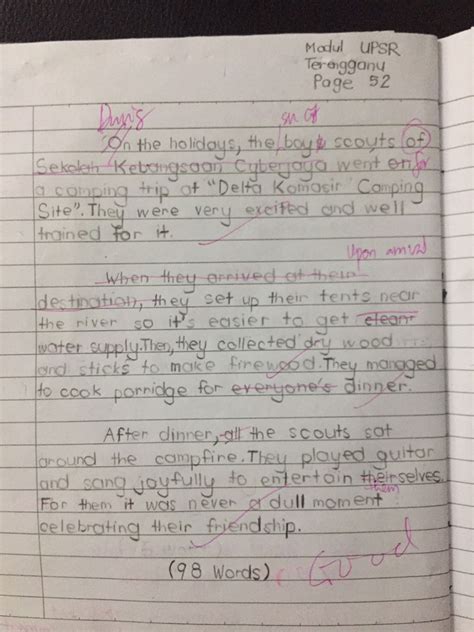 Modul UPSR
Terengganu
Page 52
During
On the holidays, the boys scouts of
Sekolah Kebangsaan Cyberjaya went on for
a camping trip at "Delta Komasir Camping
Site". They were very excited and well
trained for it.
Upon arrival
When they arrived at their
destination, they set up their tents near
the river so it's easier to get clean
water supply. Then, they collected dry wood
and sticks to make firewood. They managed
to cook porridge for everyone's dinner.
After dinner, all the scouts sat
around the campfire. They played guitar
and sang joyfully to entertain theirselves.
them
For them it was never a dull moment
celebrating their friendship.
(98 Words)
Good